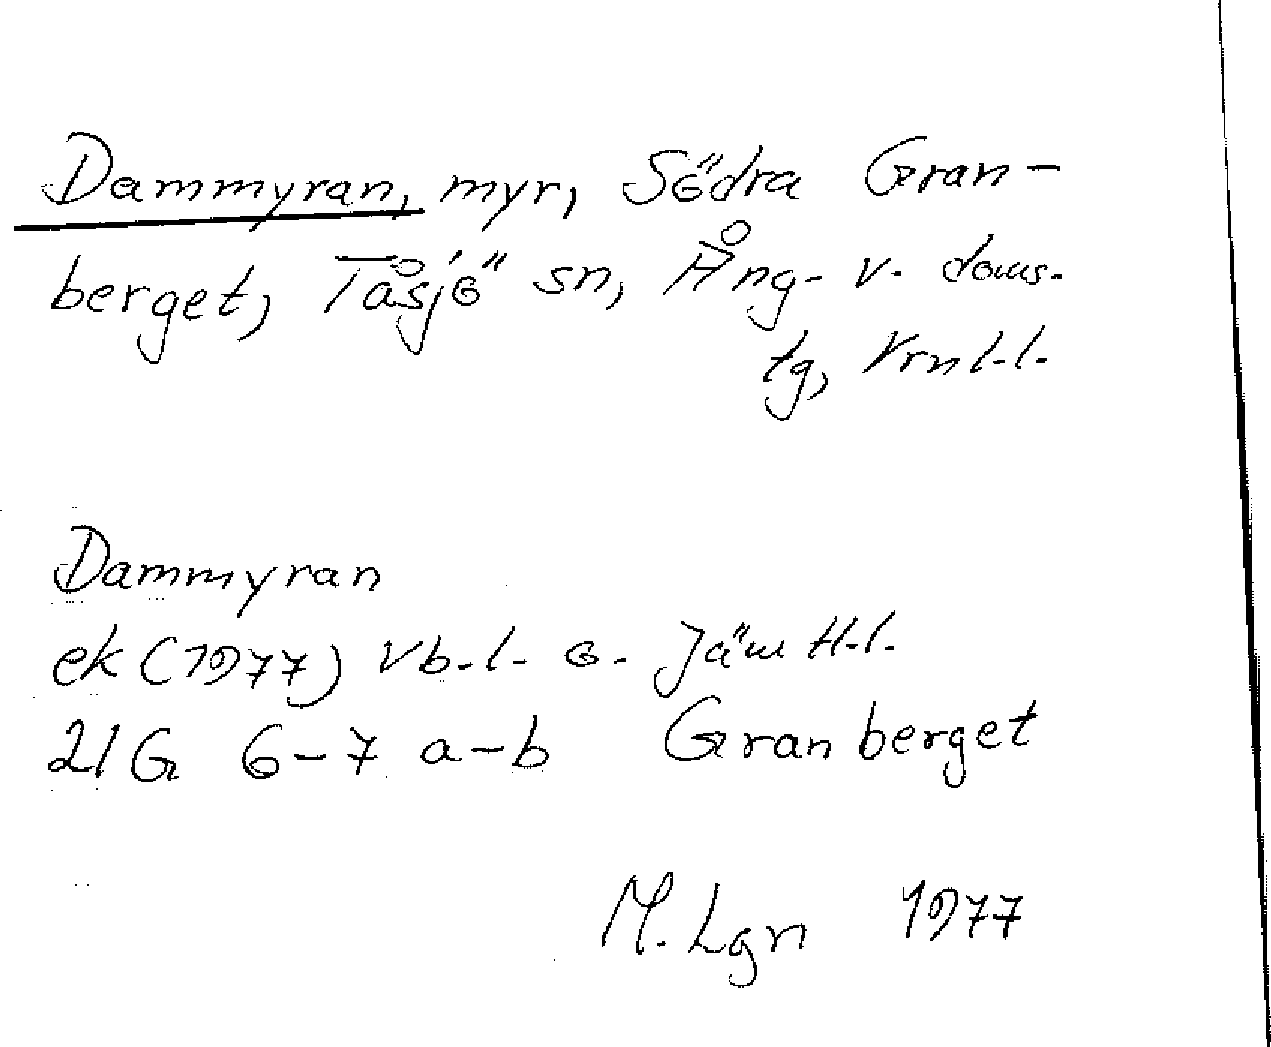 Dammyran, myr, Södra Gran-
berget, Tåsjö sn, Ång- v. doms-
tg, Vrnl.l.
Dammyran
ek (1977) Vb.l. o. Jämtl.l.
21G 6-7 a-b Granberget
M. Lgn 1977